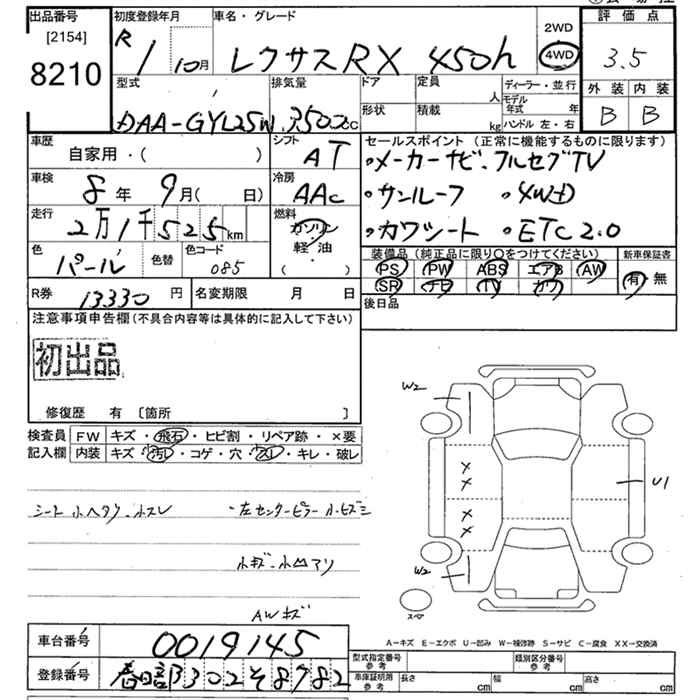 出品番号
[2154]
8210
初度登録年月
R 1 10月
車名・グレード
レクサスRX 450h
2WD
4WD
評価点
3.5
外装 内装
B B
型式
DAA-GYL25W
排気量
3500cc
ドア
形状
定員
人
積載
kg
ディーラー・並行
モデル年式 年
ハンドル 左・右
車歴
自家用・( )
シフト
AT
セールスポイント (正常に機能するものに限ります)
・メーカーナビ・フルセグTV
・サンルーフ ・4WD
・カワシート ・ETC2.0
車検
8年 9月( 日)
冷房
AAC
走行
2万1千525km
燃料
ガソリン
軽油
( ・ )
色
パール
色替
色コード
085
装備品 (純正品に限り○をつけてください)
PS PW ABS エアB AW
SR ナビ TV カワ
新車保証書
有・無
R券
13330円
名変期限 月 日
後日品
注意事項申告欄(不具合内容等は具体的に記入して下さい)
初出品
修復歴 有 〔箇所 〕
検査員記入欄
FW キズ・飛石・ヒビ割・リペア跡・×要
内装 キズ・汚レ・コゲ・穴・スレ・キレ・破レ
シート小ヘタリ・小スレ ・左センターピラー小ヒズミ
小キズ・小凹アリ
AWキズ
W2
U1
W2
スペア
A-キズ E-エクボ U-凹み W-補修跡 S-サビ C-腐食 XX-交換済
車台番号
0019145
登録番号
春日部302そ8782
型式指定番号 参考
類別区分番号 参考
車庫証明用 参考
長さ cm
幅 cm
高さ cm